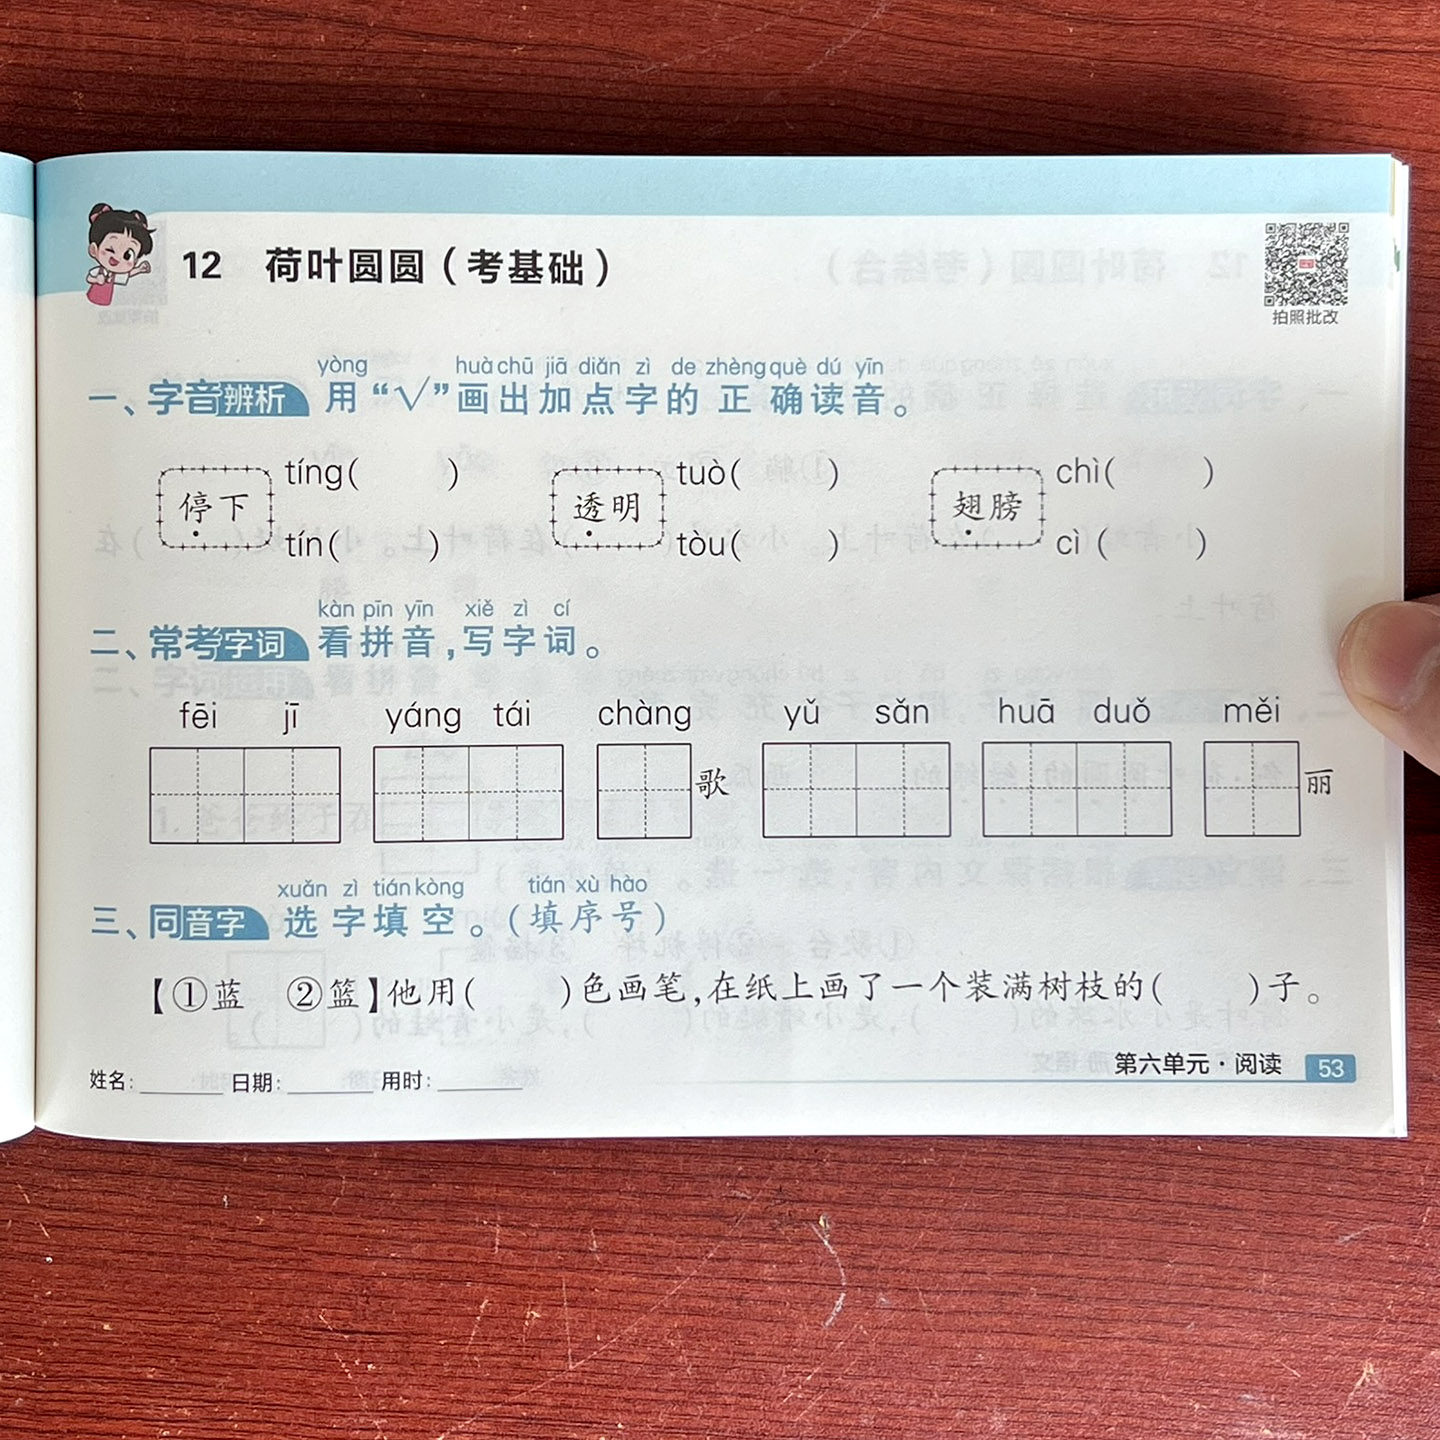 12 荷叶圆圆（考基础）
拍照批改
yòng huà chū jiā diǎn zì de zhèng què dú yīn
一、字音辨析 用“√”画出加点字的正确读音。
tíng( ) tuò( ) chì( )
停下 透明 翅膀
tín( ) tòu( ) cì( )
kàn pīn yīn xiě zì cí
二、常考字词 看拼音,写字词。
fēi jī yáng tái chàng yǔ sǎn huā duǒ měi
歌 丽
xuǎn zì tián kòng tián xù hào
三、同音字 选字填空。(填序号)
【①蓝 ②篮】他用( )色画笔,在纸上画了一个装满树枝的( )子。
姓名:______ 日期:______ 用时:______ 第六单元·阅读 53